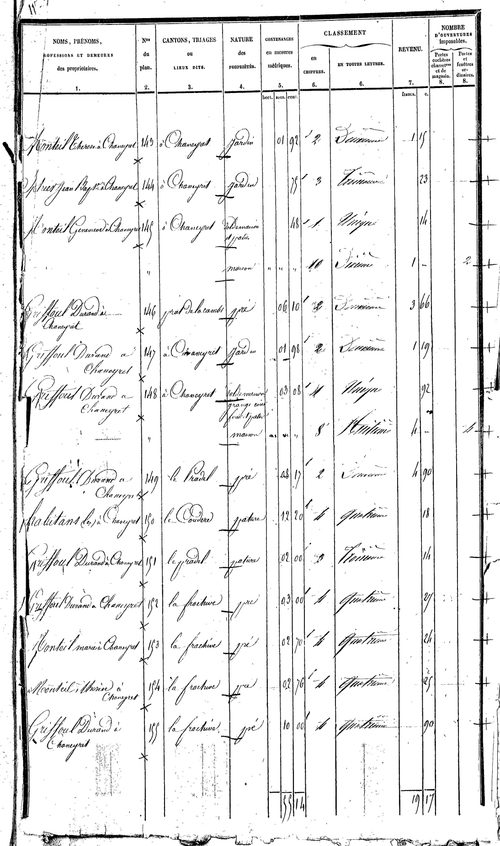 NOMS, PRÉNOMS, PROFESSIONS ET DEMEURES des propriétaires. 1.
Nos du plan. 2.
CANTONS, TRIAGES ou LIEUX DITS. 3.
NATURE des PROPRIÉTÉS. 4.
CONTENANCES en mesures métriques. 5.
CLASSEMENT
en CHIFFRES. 6.
EN TOUTES LETTRES. 6.
REVENU. 7.
NOMBRE D'OUVERTURES imposables.
Portes cochères charretières et de magasin. 8.
Portes et fenêtres ordinaires. 8.
hect. ares cent. francs. c.
Monteil Therese à Chaneyret 143 à Chaneyret jardin 01 92 2 Deuxième 1 15
Jean Bapte à Chaneyret 144 à Chaneyret jardin 75 3 Troisième 23
Monteil Genevieve à Chaneyret 145 à Chaneyret sol de maison 48 1 Unique 14
" maison " " " 10 Dixième 1 - 2
Griffoul Durand à Chaneyret 146 pré 06 10 2 Deuxième 3 66
Griffoul Durand à Chaneyret 147 à Chaneyret jardin 01 98 2 Deuxième 1 19
Griffoul Durand à Chaneyret 148 à Chaneyret sol de maison grange 03 08 Unique 92
" maison " " " 8 Huitième 4 -
Griffoul Durand à Chaneyret 149 le Pradel pré 17 2 Deuxième 4 90
habitans (les) à Chaneyret 150 le Couderc pature 12 20 4 quatrième 18
Griffoul Durand à Chaneyret 151 le pradel pature 02 00 3 Troisième 14
Griffoul Durand à Chaneyret 152 la fractive pré 03 00 4 quatrième 27
Monteil à Chaneyret 153 la fractive pré 02 70 4 quatrième 24
Monteil à Chaneyret 154 la fractive pré 02 76 4 quatrième 25
Griffoul Durand à Chaneyret 155 la fractive pré 10 00 4 quatrième 90
55 14 19 17